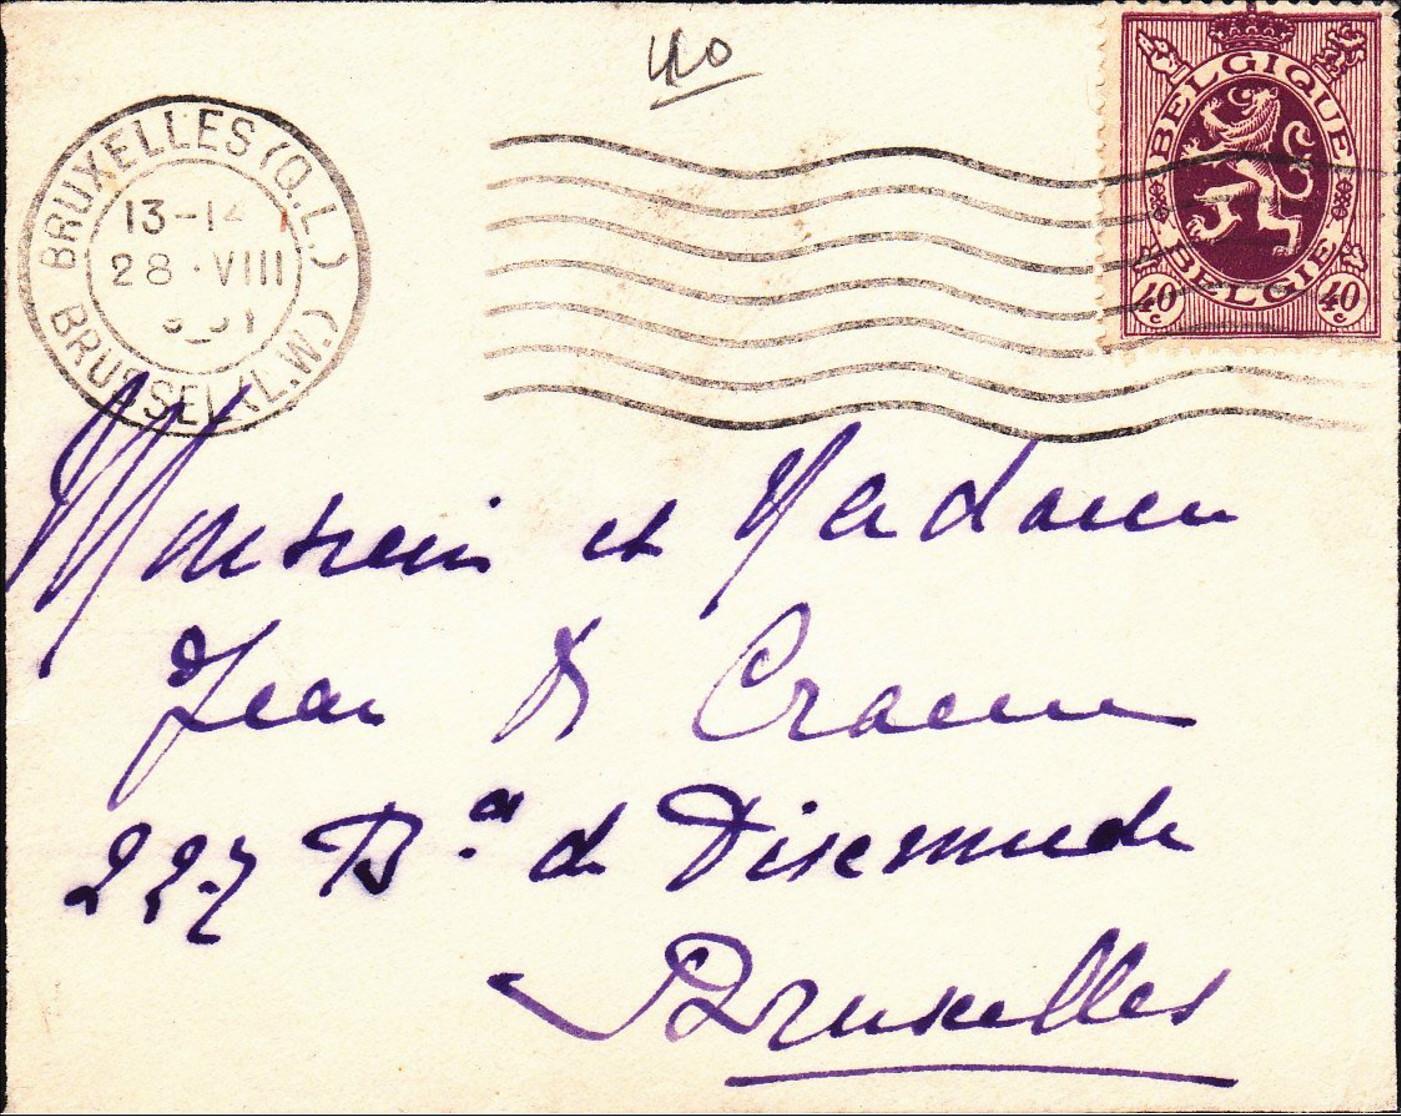 40
BELGIQUE
BELGIE
40 c
40 c
BRUXELLES (Q.L.)
13-14
28 · VIII
BRUSSEL (L.W.)
Monsieur et Madame
Jean De Craene
227 Bd de Dixmude
Bruxelles